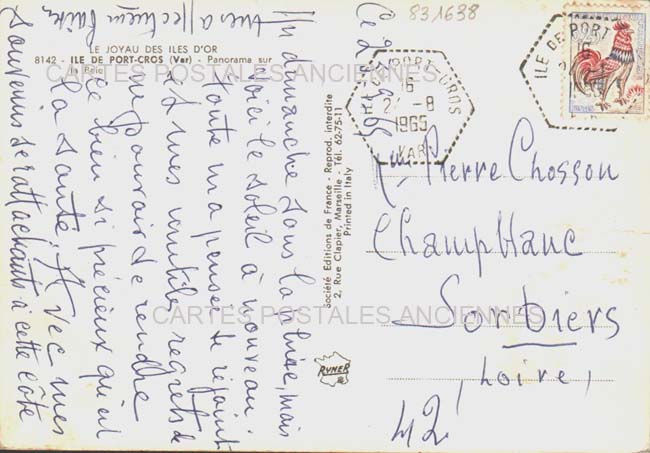 831638
LE JOYAU DES ILES D'OR
8142 - ILE DE PORT-CROS (Var) - Panorama sur
la Baie
CARTES POSTALES ANCIENNES
ILE DE PORT-CROS
16
2 -8
1965
VAR
ILE DE PORT
16
Ce 2
Un dimanche sous la pluie, mais
voici le soleil à nouveau.
Toute ma pensée te rejoint
et mes inutiles regrets de
ne pouvoir te rendre
le bien si précieux qu'est
la santé. Avec mes
souvenirs se rattachant à cette côte
très affectueux
Société Editions de France - Reprod. interdite
2, Rue Clapier, Marseille - Tél. 62-75-11
Printed in Italy
RYNER
Pierre Chosson
Champblanc
Sorbiers
(Loire)
42
CARTES POSTALES ANCIENNES